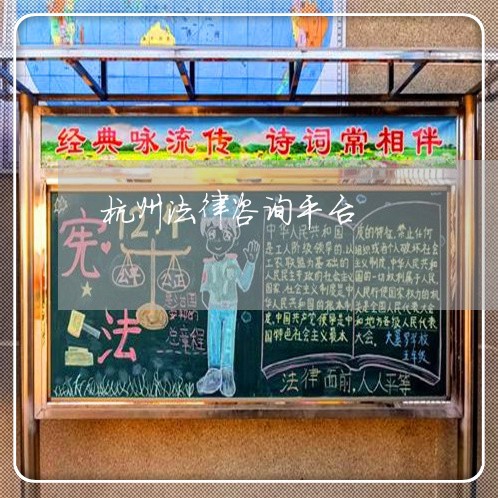 经典咏流传 诗词常相伴
杭州法律咨询平台
宪
12.4
法
公平
公正
总章程
中华人民共和国
是工人阶级领导的,以
工农联盟为基础的
人民民主专政的社会主义
国家。社会主义制度是中
华人民共和国的根本制
度。中国共产党领导是中
国特色社会主义最本
质的特征。禁止任何
组织或者个人破坏社会
主义制度。中华人民共和
国的一切权利属于人民。
人民行使国家权力的机
关是全国人民代表大会
和地方各级人民代表
大会。
五年级
法律面前,人人平等